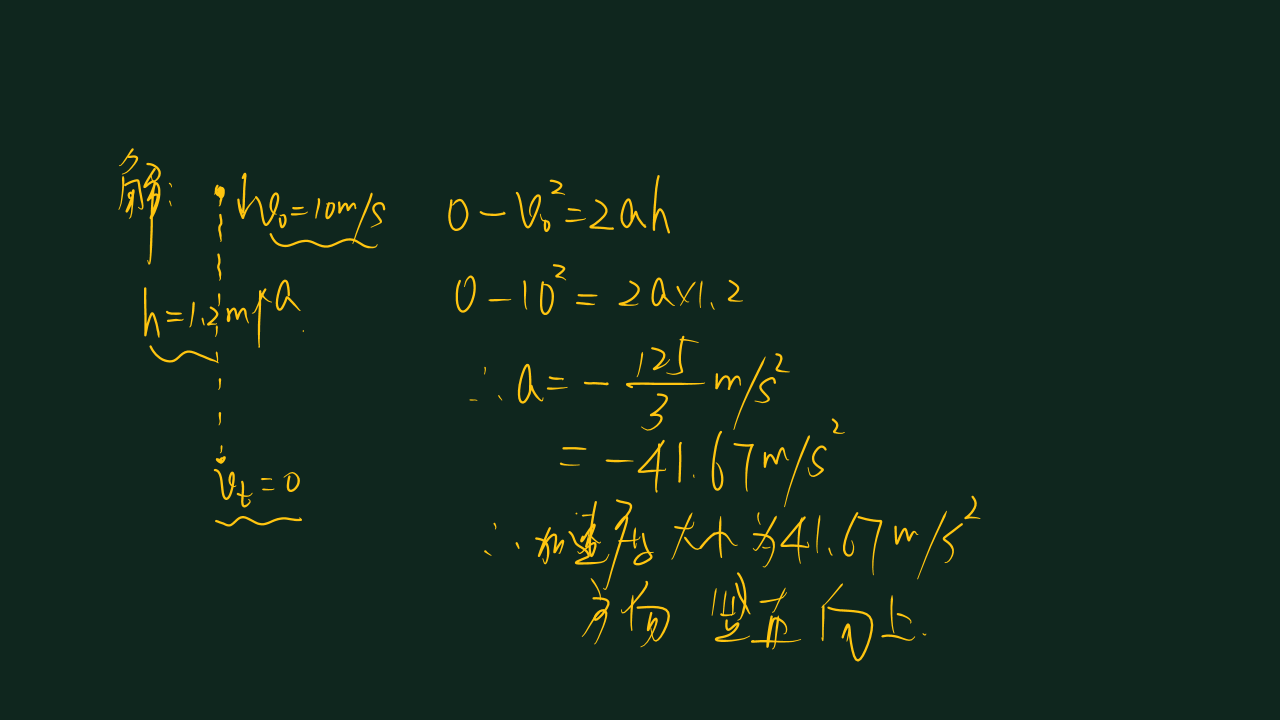 解:
v₀=10m/s
h=1.2m
a
vₜ=0
0-v₀²=2ah
0-10²=2a×1.2
∴a=-125/3 m/s²
=-41.67m/s²
∴加速度大小为41.67m/s²
方向竖直向上.